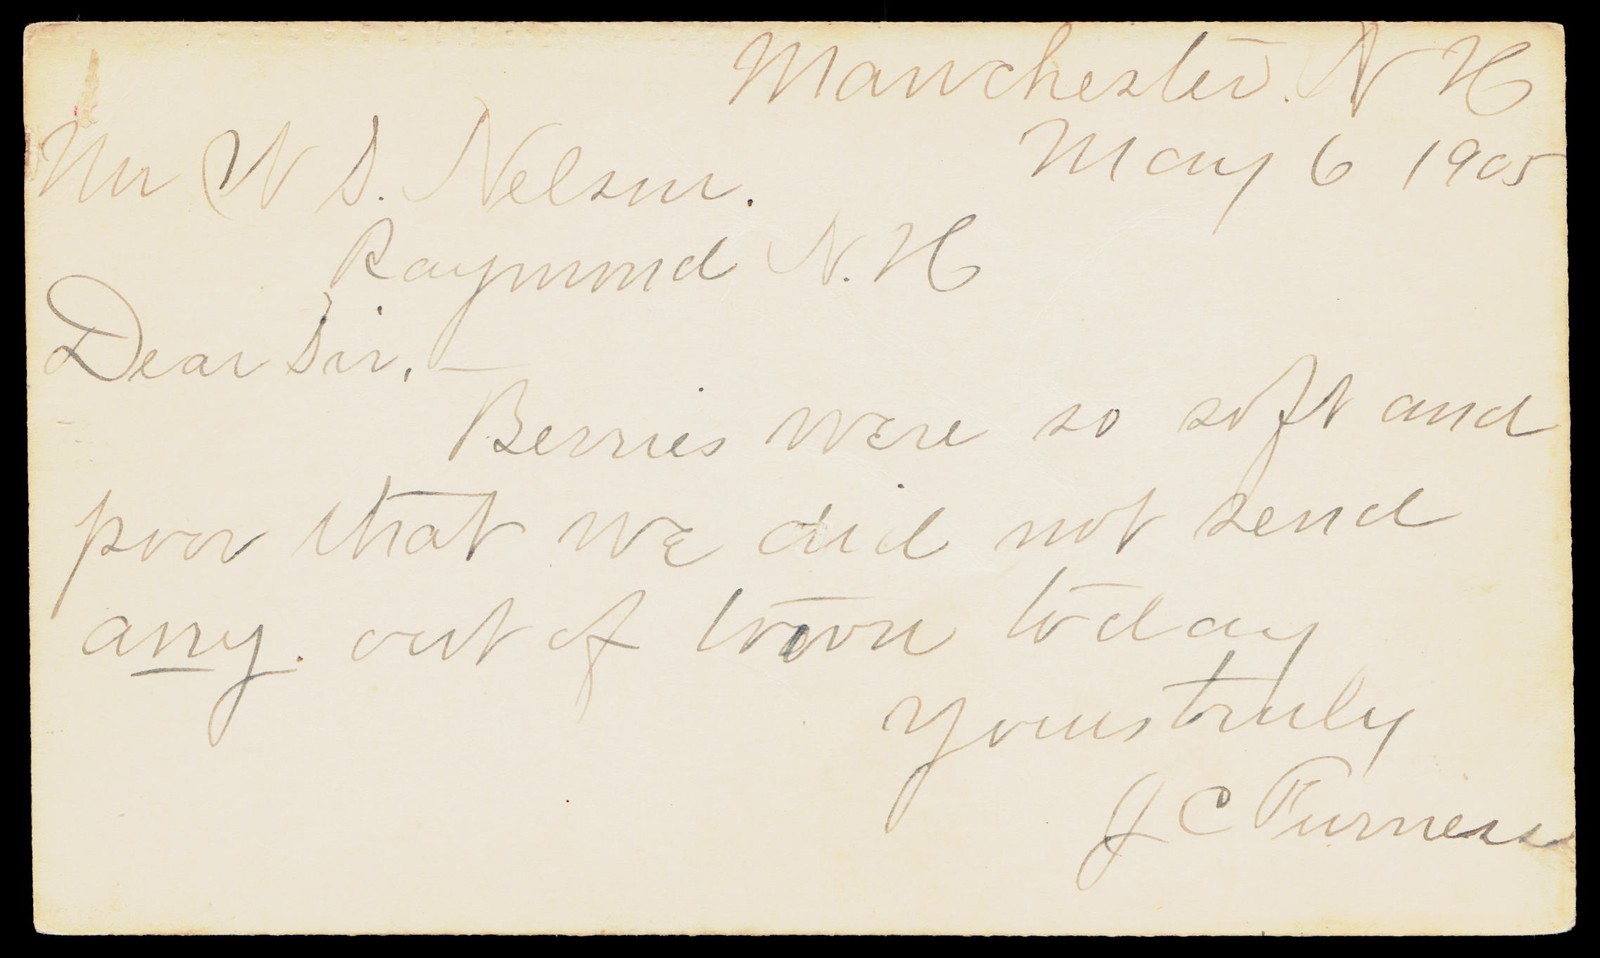 Manchester. N H
May 6 1905
Mr W S. Nelson.
Raymond N. H
Dear Sir, —
Berries were so soft and
poor that we did not send
any. out of town today
Yours truly
J C Furness